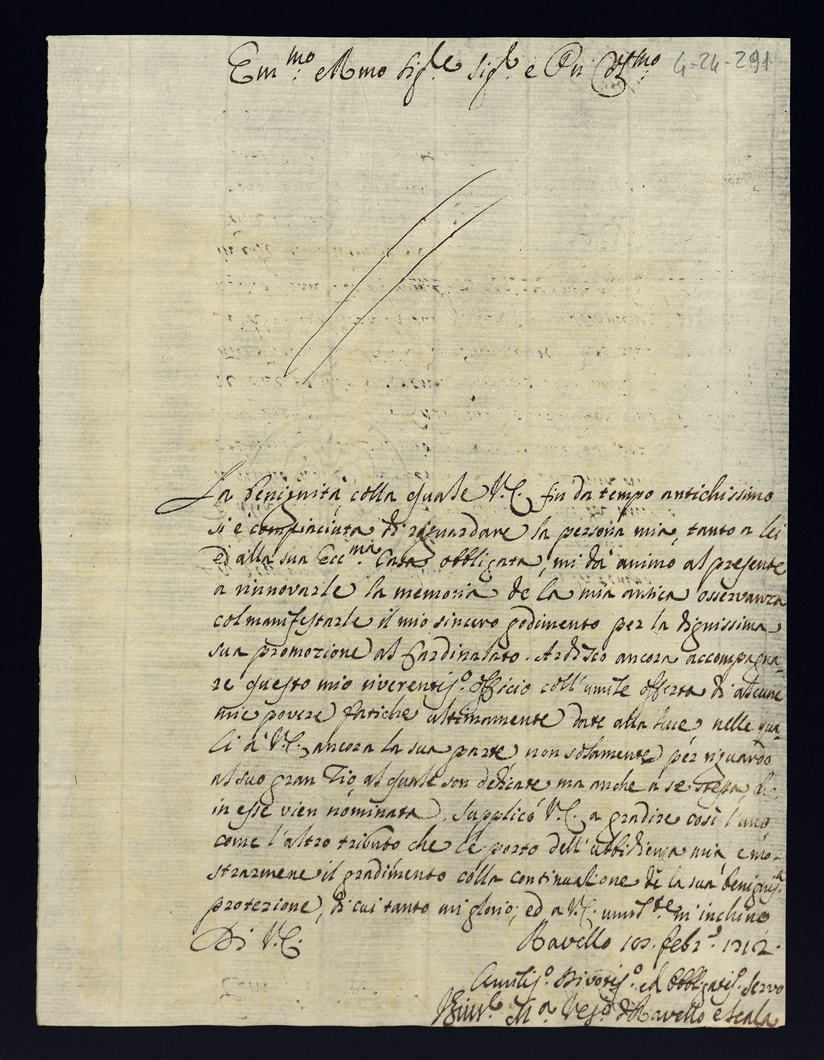 Em.mo e Rmo Sig.re Sig.r e Pn Col.mo 4-24-291
La benignità, colla quale V.E. fin da tempo antichissimo
si è compiaciuta di riguardare la persona mia, tanto a lei
ed alla sua Ecc.ma Casa obbligata, mi dà animo al presente
a rinnovarle la memoria de la mia antica osservanza
col manifestarle il mio sincero godimento per la dignissima
sua promozione al Cardinalato. Ardisco ancora accompagna-
re questo mio riverentiss.o officio coll'umile offerta di alcune
mie povere fatiche ultimamente date alla luce, nelle qua-
li à V.E. ancora la sua parte, non solamente per riguardo
al suo gran Zio, al quale son dedicate, ma anche a se stessa, che
in esse vien nominata. Supplico V.E. a gradire così l'uno
come l'altro tributo che le porto dell'ubbidienza mia, e mo-
strarmene il gradimento colla continuazione de la sua benigniss.a
protezione, di cui tanto mi glorio; ed a V.E. umilm.te m'inchino
Di V.E. Ravello febr.o 1712.
Aumiliss.o Divotiss.o ed Obbligatiss. Servo
M.a Vesc.o di Ravello e Scala